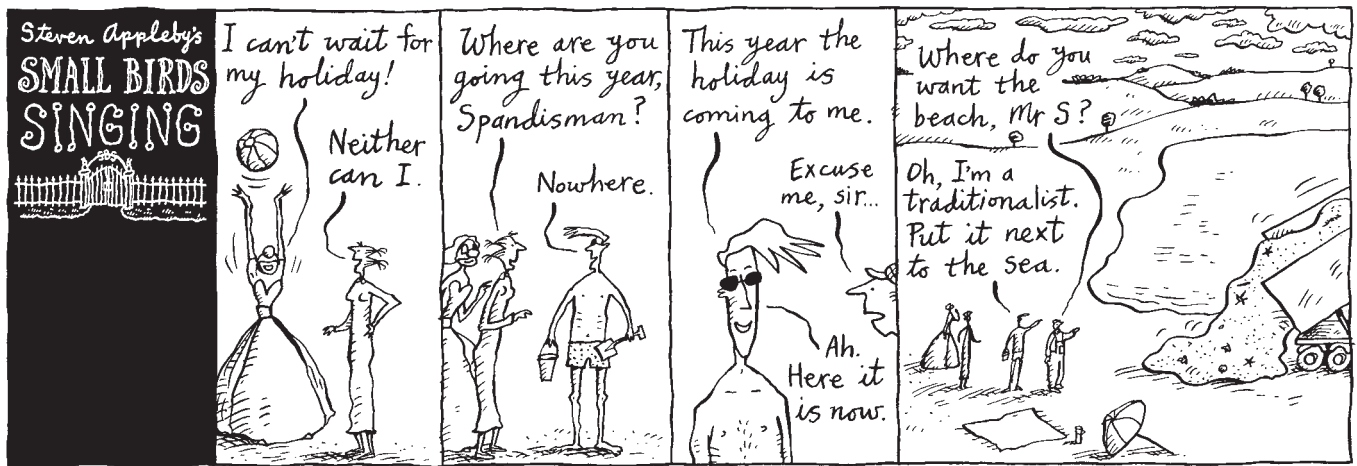 Steven Appleby's
SMALL BIRDS
SINGING
SBS
I can't wait for
my holiday!
Neither
can I.
Where are you
going this year,
Spandisman?
Nowhere.
This year the
holiday is
coming to me.
Excuse
me, sir...
Ah.
Here it
is now.
Where do you
want the
beach, Mr S?
Oh, I'm a
traditionalist.
Put it next
to the sea.